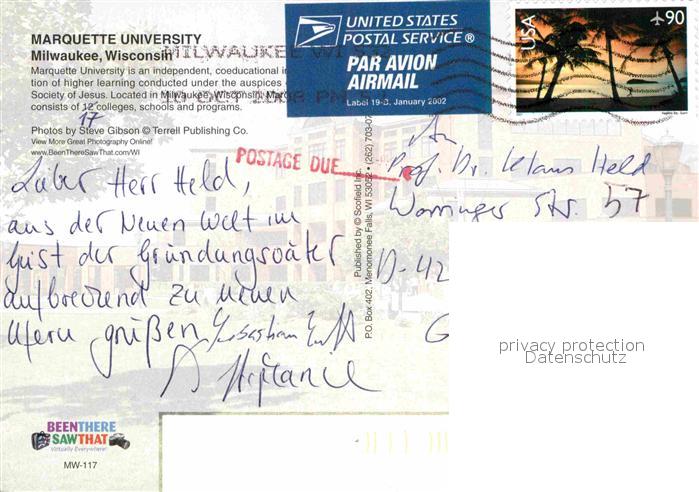 MARQUETTE UNIVERSITY
Milwaukee, Wisconsin
Marquette University is an independent, coeducational in
tion of higher learning conducted under the auspices o
Society of Jesus. Located in Milwaukee, Wisconsin, Marq
consists of 12 colleges, schools and programs.
17
Photos by Steve Gibson © Terrell Publishing Co.
View More Great Photography Online!
www.BeenThereSawThat.com/WI
MILWAUKEE WI
OCT 2008 PM
UNITED STATES
POSTAL SERVICE®
PAR AVION
AIRMAIL
Label 19-B, January 2002
USA
90
POSTAGE DUE
An
Prof. Dr. Klaus Held
Worringer Str. 57
D-42
G
Lieber Herr Held,
aus der Neuen Welt im
Geist der Gründungsväter
aufbrechend zu neuen
Ufern grüßen Sebastian
Stefanie
Published by © Scofield Inc.
P.O. Box 402, Menomonee Falls, WI 53052 • (262) 703-07
BEENTHERE
SAWTHAT
Virtually Everywhere!
MW-117
privacy protection
Datenschutz